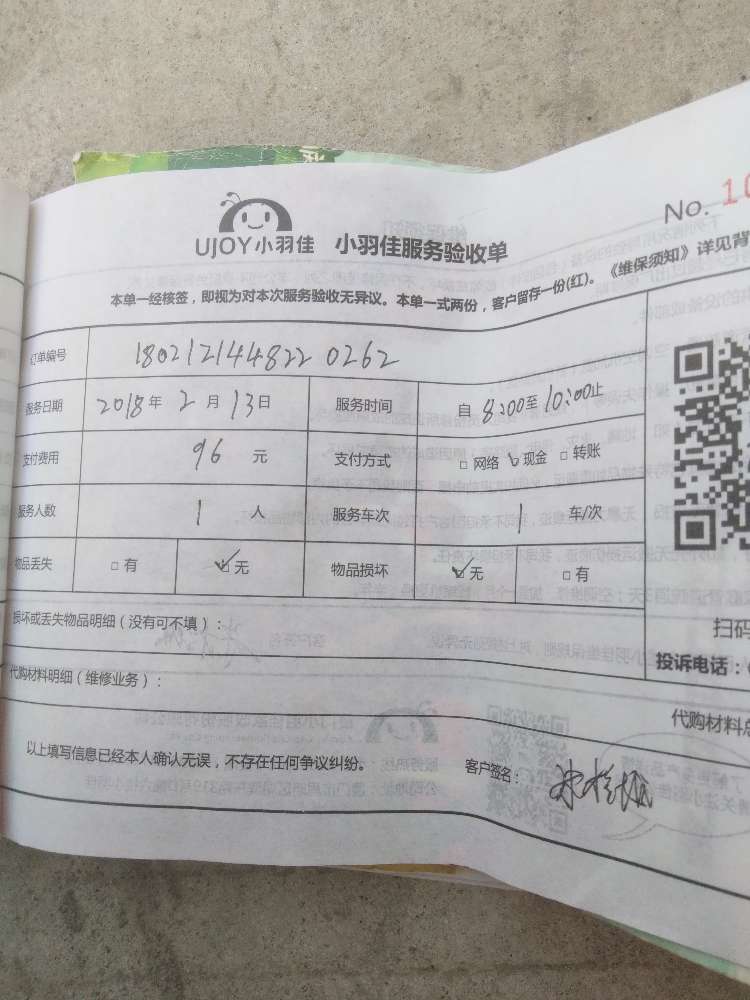 No. 10
UJOY小羽佳 小羽佳服务验收单
本单一经核签，即视为对本次服务验收无异议。本单一式两份，客户留存一份(红)。《维保须知》详见背
订单编号 180212144822 0262
服务日期 2018年2月13日 服务时间 自8:00至10:00止
支付费用 96 元 支付方式 □网络 ✓现金 □转账
服务人数 1 人 服务车次 1 车/次
物品丢失 □有 ✓无 物品损坏 ✓无 □有
损坏或丢失物品明细（没有可不填）：
扫码
投诉电话：
代购材料明细（维修业务）：
代购材料总
以上填写信息已经本人确认无误，不存在任何争议纠纷。 客户签名：